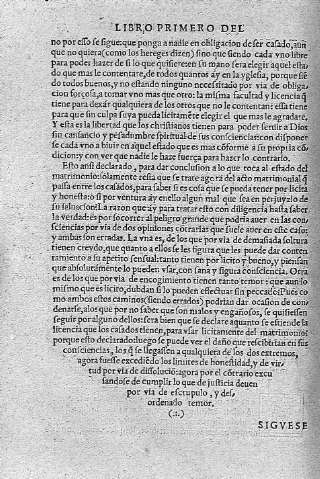 LIBRO PRIMERO DEL
no por esso se sigue: que ponga a nadie en obligacion de ser casado, aun
que no quiera (como los hereges dizen) sino que siendo cada vno libre
para poder hazer de si lo que quisiere: en su mano sera elegir aquel esta
do que mas le contentare, de todos quantos ay en la yglesia, porque siē
do todos buenos, y no estando ninguno necessitado por via de obliga
cion forçosa, a tomar vno mas que otro: la misma facultad y licencia q̄
tiene para dexar qualquiera de los otros que no le contentan: essa tiene
para que sin culpa suya pueda licitamēte elegir el que mas le agradare.
Y esta es la libertad que los christianos tienen para seruir a Dios
sin cansancio y pesadumbre spiritual de sus consciencias: con disponer
se cada vno a biuir en aquel estado que es mas cōforme a su propria cō
dicion: y con ver que nadie le haze fuerça para hazer lo contrario.
Esto ansi declarado, para dar conclusion a lo que toca al estado del
matrimonio: solamente resta que se trate agora del acto matrimonial q̄
passa entre los casados, para saber si es cosa que se pueda tener por licita
y honesta: o si por ventura ay en ello algun mal que sea en perjuyzio de
su saluacion. La razon que ay para tratar esto con diligencia hasta saber
la verdad: es por socorrer al peligro grande que podria auer en las con
sciencias por via de dos opiniones cōtrarias que suele auer en este caso:
y ambas son erradas. La vna es, de los que por via de demasiada soltura
tienen creydo, que quanto a ellos se les figura que les puede dar conten
tamiento a su apetito sensual: tanto tienen por licito y bueno, y piensan
que absolutamente lo pueden vsar, con sana y sigura consciencia. Otra
es de los que por via de encogimiento tienen tanto temor: que aun lo
mismo que es licito, dubdan si lo pueden effectuar sin peccado. Pues co
mo ambos estos caminos (siendo errados) podrian dar ocasion de con
denarse, a los que por no saber que son malos y engañosos, se quisiessen
seguir por alguno dellos: sera bien que se declare a quanto se estiende la
licencia que los casados tienen, para vsar licitamente del matrimonio:
porque esto declarado: luego se puede ver el daño que rescibirian en sus
consciencias, los q̄ se llegassen a qualquiera de los dos extremos,
agora fuesse excediēdo los limites de honestidad, y de vir
tud por via de dissolució: agora por el cōtrario excu
sandose de cumplir lo que de justicia deuen
por via de escrupulo, y des
ordenado temor.
(.?.)
SIGVESE